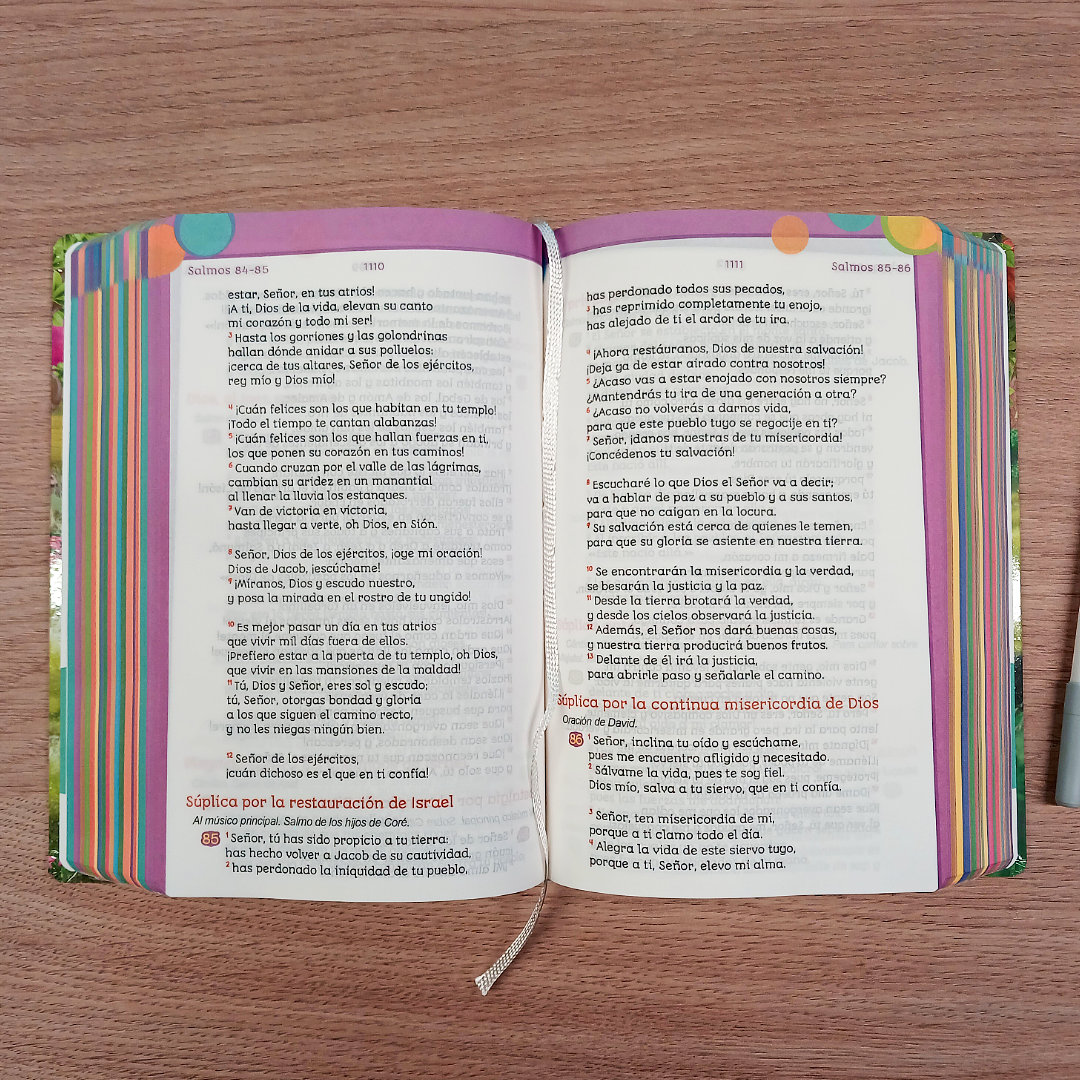 Salmos 84-85
1110
estar, Señor, en tus atrios!
¡A ti, Dios de la vida, elevan su canto
mi corazón y todo mi ser!
3 Hasta los gorriones y las golondrinas
hallan dónde anidar a sus polluelos:
¡cerca de tus altares, Señor de los ejércitos,
rey mío y Dios mío!
4 ¡Cuán felices son los que habitan en tu templo!
¡Todo el tiempo te cantan alabanzas!
5 ¡Cuán felices son los que hallan fuerzas en ti,
los que ponen su corazón en tus caminos!
6 Cuando cruzan por el valle de las lágrimas,
cambian su aridez en un manantial
al llenar la lluvia los estanques.
7 Van de victoria en victoria,
hasta llegar a verte, oh Dios, en Sión.
8 Señor, Dios de los ejércitos, ¡oye mi oración!
Dios de Jacob, ¡escúchame!
9 ¡Míranos, Dios y escudo nuestro,
y posa la mirada en el rostro de tu ungido!
10 Es mejor pasar un día en tus atrios
que vivir mil días fuera de ellos.
¡Prefiero estar a la puerta de tu templo, oh Dios,
que vivir en las mansiones de la maldad!
11 Tú, Dios y Señor, eres sol y escudo;
tú, Señor, otorgas bondad y gloria
a los que siguen el camino recto,
y no les niegas ningún bien.
12 Señor de los ejércitos,
¡cuán dichoso es el que en ti confía!
Súplica por la restauración de Israel
Al músico principal. Salmo de los hijos de Coré.
85 1 Señor, tú has sido propicio a tu tierra:
has hecho volver a Jacob de su cautividad,
2 has perdonado la iniquidad de tu pueblo,
1111
Salmos 85-86
has perdonado todos sus pecados,
3 has reprimido completamente tu enojo,
has alejado de ti el ardor de tu ira.
4 ¡Ahora restáuranos, Dios de nuestra salvación!
¡Deja ya de estar airado contra nosotros!
5 ¿Acaso vas a estar enojado con nosotros siempre?
¿Mantendrás tu ira de una generación a otra?
6 ¿Acaso no volverás a darnos vida,
para que este pueblo tuyo se regocije en ti?
7 Señor, ¡danos muestras de tu misericordia!
¡Concédenos tu salvación!
8 Escucharé lo que Dios el Señor va a decir;
va a hablar de paz a su pueblo y a sus santos,
para que no caigan en la locura.
9 Su salvación está cerca de quienes le temen,
para que su gloria se asiente en nuestra tierra.
10 Se encontrarán la misericordia y la verdad,
se besarán la justicia y la paz.
11 Desde la tierra brotará la verdad,
y desde los cielos observará la justicia.
12 Además, el Señor nos dará buenas cosas,
y nuestra tierra producirá buenos frutos.
13 Delante de él irá la justicia,
para abrirle paso y señalarle el camino.
Súplica por la continua misericordia de Dios
Oración de David.
86 1 Señor, inclina tu oído y escúchame,
pues me encuentro afligido y necesitado.
2 Sálvame la vida, pues te soy fiel.
Dios mío, salva a tu siervo, que en ti confía.
3 Señor, ten misericordia de mí,
porque a ti clamo todo el día.
4 Alegra la vida de este siervo tuyo,
porque a ti, Señor, elevo mi alma.